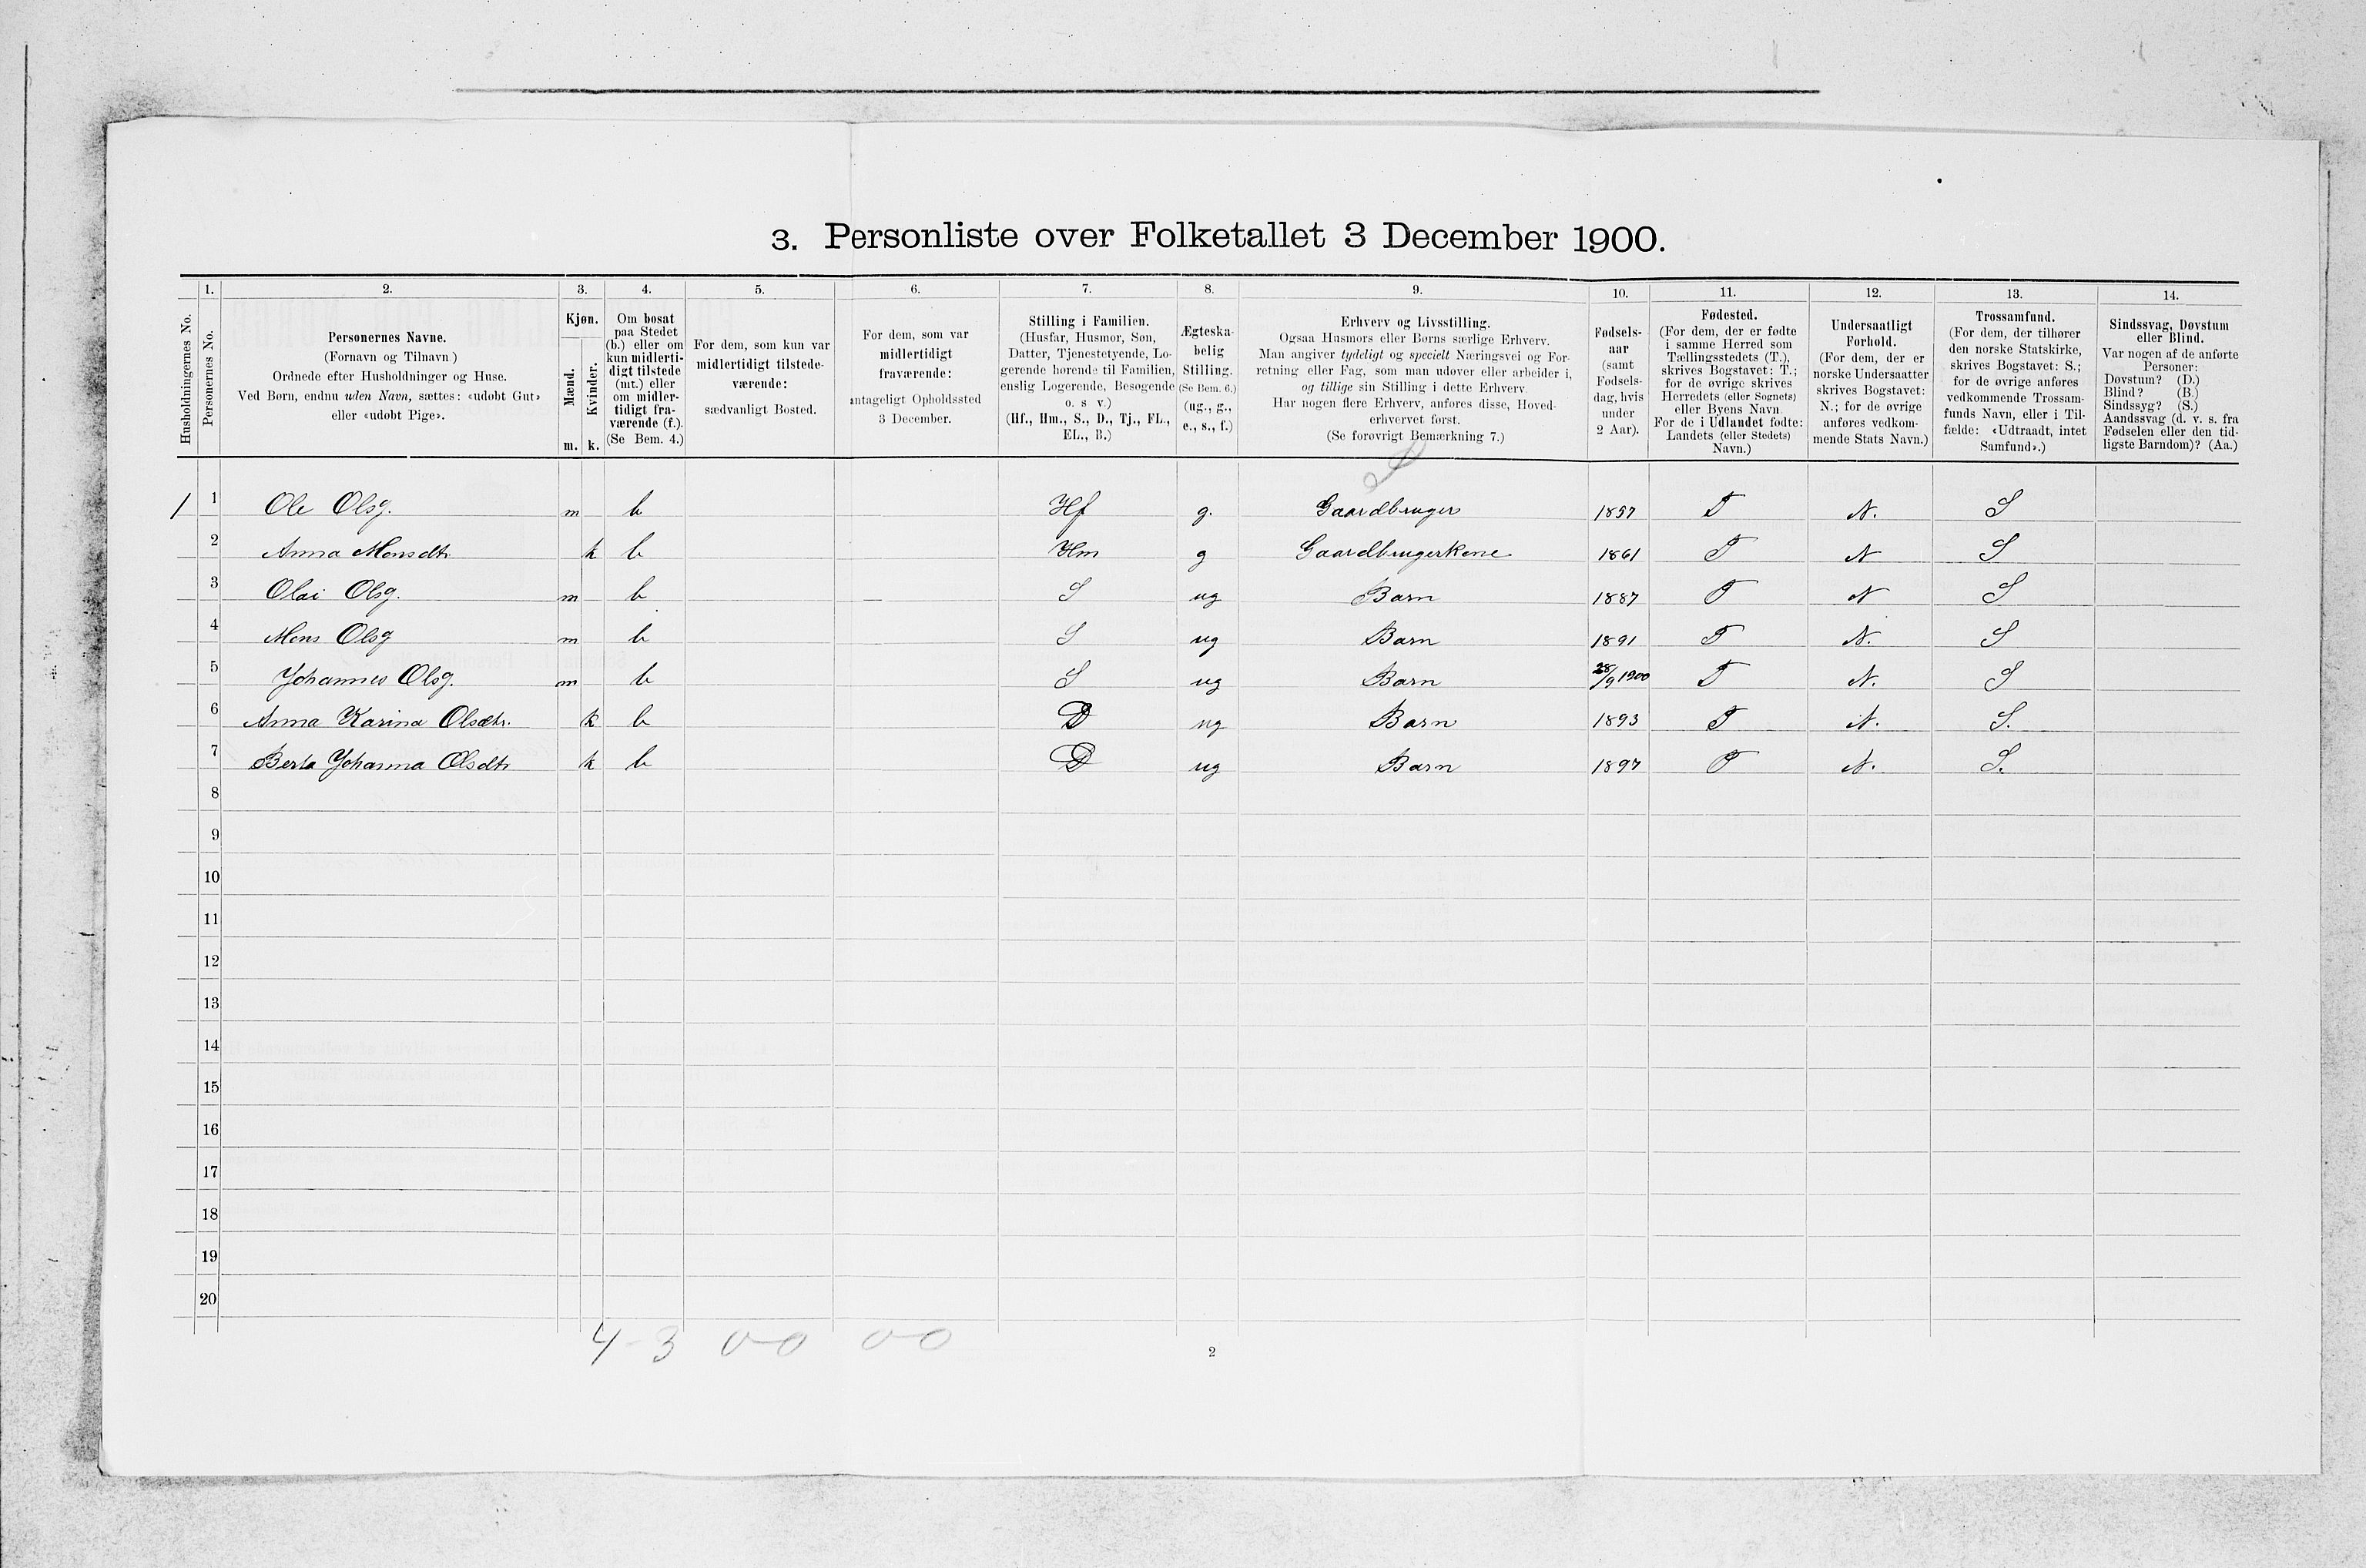 3. Personliste over Folketallet 3 December 1900.
Husholdningernes No.
1.
Personernes No.
2.
Personernes Navne.
(Fornavn og Tilnavn)
Ordnede efter Husholdninger og Huse.
Ved Børn, endnu uden Navn, sættes: «udøbt Gut»
eller «udøbt Pige».
3.
Kjøn.
Mænd.
Kvinder.
m. k.
4.
Om bosat
paa Stedet
(b.) eller om
kun midlerti-
digt tilstede
(mt.) eller
om midler-
tidigt fra-
værende (f.).
(Se Bem. 4.)
5.
For dem, som kun var
midlertidigt tilstede-
værende:
sædvanligt Bosted.
6.
For dem, som var
midlertidigt
fraværende:
antageligt Opholdssted
3 December.
7.
Stilling i Familien.
(Husfar, Husmor, Søn,
Datter, Tjenestetyende, Lo-
gerende hørende til Familien,
enslig Logerende, Besøgende
o. s v.)
(Hf., Hm., S., D., Tj., FL.,
EL., B.)
8.
Ægteska-
belig
Stilling.
(Se Bem. 6.)
(ug., g.,
e., s., f.)
9.
Erhverv og Livsstilling.
Ogsaa Husmors eller Børns særlige Erhverv.
Man angiver tydeligt og specielt Næringsvei og For-
retning eller Fag, som man udøver eller arbeider i,
og tillige sin Stilling i dette Erhverv.
Har nogen flere Erhverv, anføres disse, Hoved-
erhvervet først.
(Se forøvrigt Bemærkning 7.)
10.
Fødsels-
aar
(samt
Fødsels-
dag, hvis
under
2 Aar).
11.
Fødested.
(For dem, der er fødte
i samme Herred som
Tællingsstedets (T.),
skrives Bogstavet: T.;
for de øvrige skrives
Herredets (eller Sognets)
eller Byens Navn.
For de i Udlandet fødte:
Landets (eller Stedets)
Navn.)
12.
Undersaatligt
Forhold.
(For dem, der er
norske Undersaatter
skrives Bogstavet:
N.; for de øvrige
anføres vedkom-
mende Stats Navn.)
13.
Trossamfund.
(For dem, der tilhører
den norske Statskirke,
skrives Bogstavet: S.;
for de øvrige anføres
vedkommende Trossam-
funds Navn, eller i Til-
fælde: «Udtraadt, intet
Samfund».)
14.
Sindssvag, Døvstum
eller Blind.
Var nogen af de anførte
Personer:
Døvstum? (D.)
Blind? (B.)
Sindssyg? (S.)
Aandssvag (d. v. s. fra
Fødselen eller den tid-
ligste Barndom)? (Aa.)
1 1 Ole Olsg. m b Hf g. Gaardbruger 1857 T N. S
2 Anna Monsdtr. k b Hm g Gaardbrugerkone 1861 T N S
3 Olai Olsg. m b S ug Barn 1887 T N S
4 Mons Olsg m b S ug Barn 1891 T N. S
5 Johannes Olsg. m b S ug Barn 28/9 1900 T N. S
6 Anna Karina Olsdtr. k b D ug Barn 1893 T N. S.
7 Berta Johanna Olsdtr k b D ug Barn 1897 T N. S.
8
9
10
11
12
13
14
15
16
17
18
19
20
4-3 0-0 0-0
2